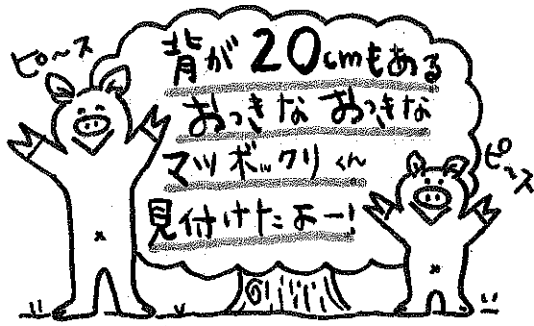 ピ〜ス
背が20cmもある
おっきなおっきな
マツボックリくん
見付けたよー!
ピ〜ス